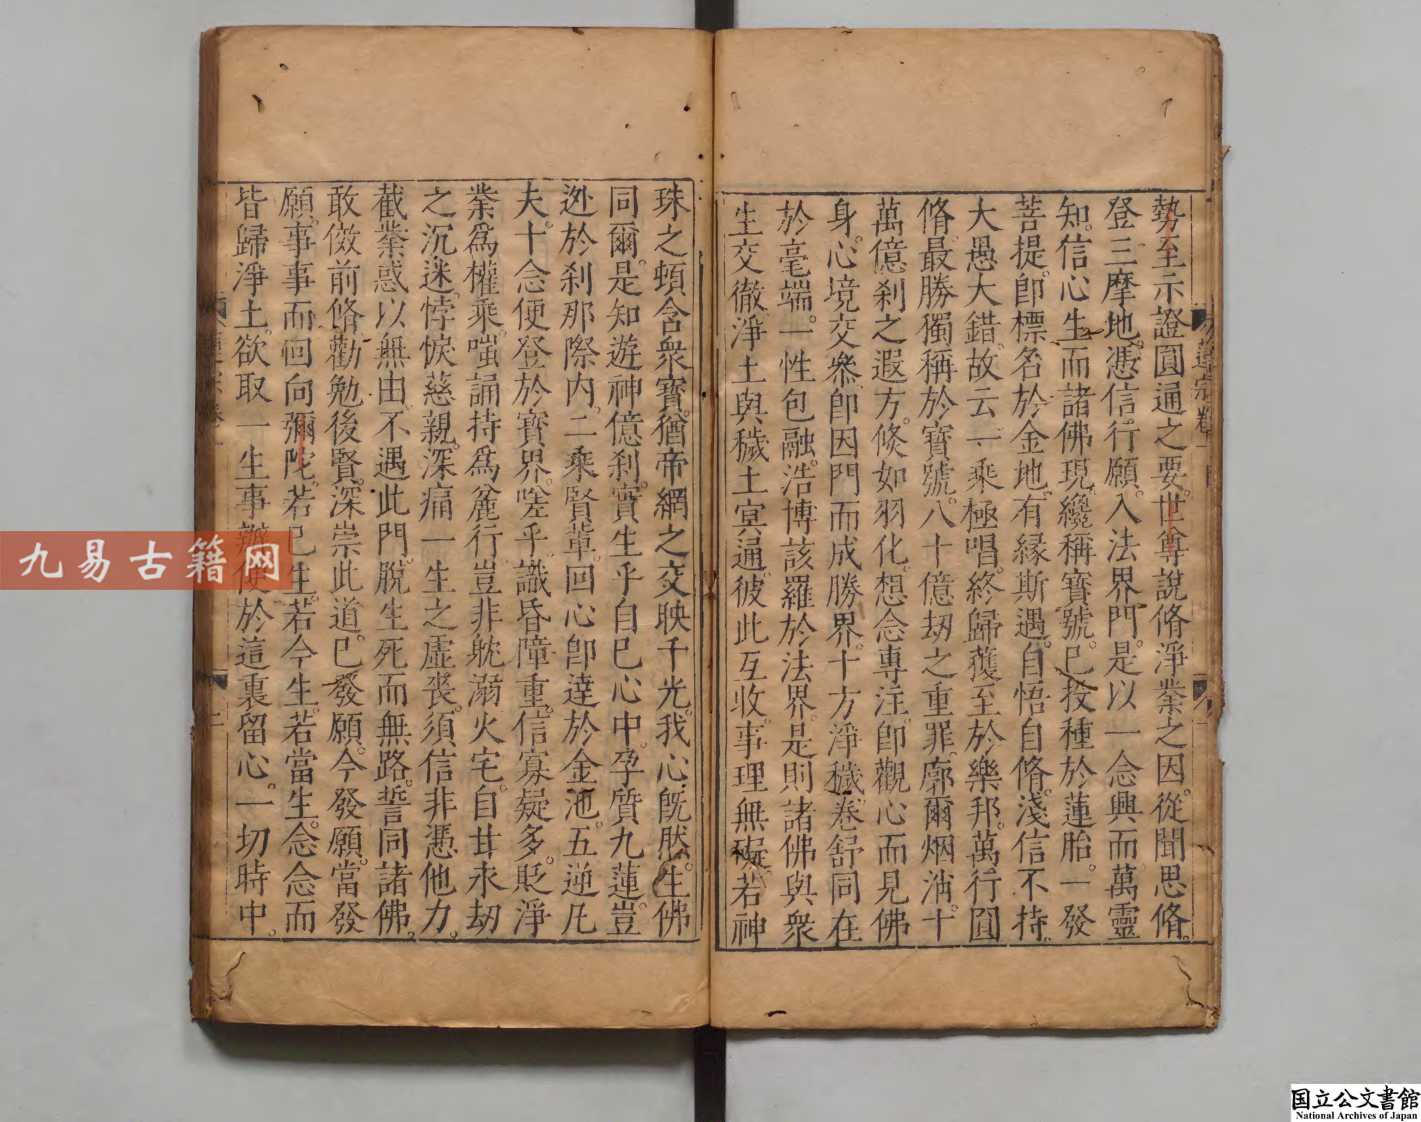 勢至示證圓通之要。世尊說脩淨業之因。從聞思脩。
登三摩地。憑信行願。入法界門。是以一念興而萬靈
知。信心生而諸佛現。纔稱寶號。已投種於蓮胎。一發
菩提。卽標名於金地。有緣斯遇。自悟自脩。淺信不持。
大愚大錯。故云一乘極唱。終歸薩至於樂邦。萬行圓
脩。最勝獨稱於寶號。八十億劫之重罪。廓爾烟消。十
萬億剎之遐方。倏如羽化。想念專注。卽觀心而見佛
身。心境交叅。卽因門而成勝界。十方淨穢。卷舒同在
於毫端。一性包融。浩博該羅於法界。是則諸佛與衆
生交徹。淨土與穢土冥通。彼此互收。事理無礙。若神
珠之頓含衆寶。猶帝網之交映千光。我心旣然。生佛
同爾。是知遊神億剎。實生乎自已心中。孕質九蓮。豈
迯於剎那際內。二乘賢輩。回心卽達於金池。五逆凡
夫。十念便登於寶界。嗟乎。識昏障重。信寡疑多。貶淨
業爲權乘。嗤誦持爲麄行。豈非躭溺火宅。自甘永劫
之沉迷。悖悷慈親。深痛一生之虛喪。須信非憑他力。
截業惑以無由。不遇此門。脫生死而無路。誓同諸佛。
敢傚前脩。勸勉後賢。深崇此道。已發願。今發願。當發
願。事事而囘向彌陀。若已生。若今生。若當生。念念而
皆歸淨土。欲取一生事辦。便於這裏留心。一切時中。
二
九易古籍网
国立公文書館
National Archives of Japan